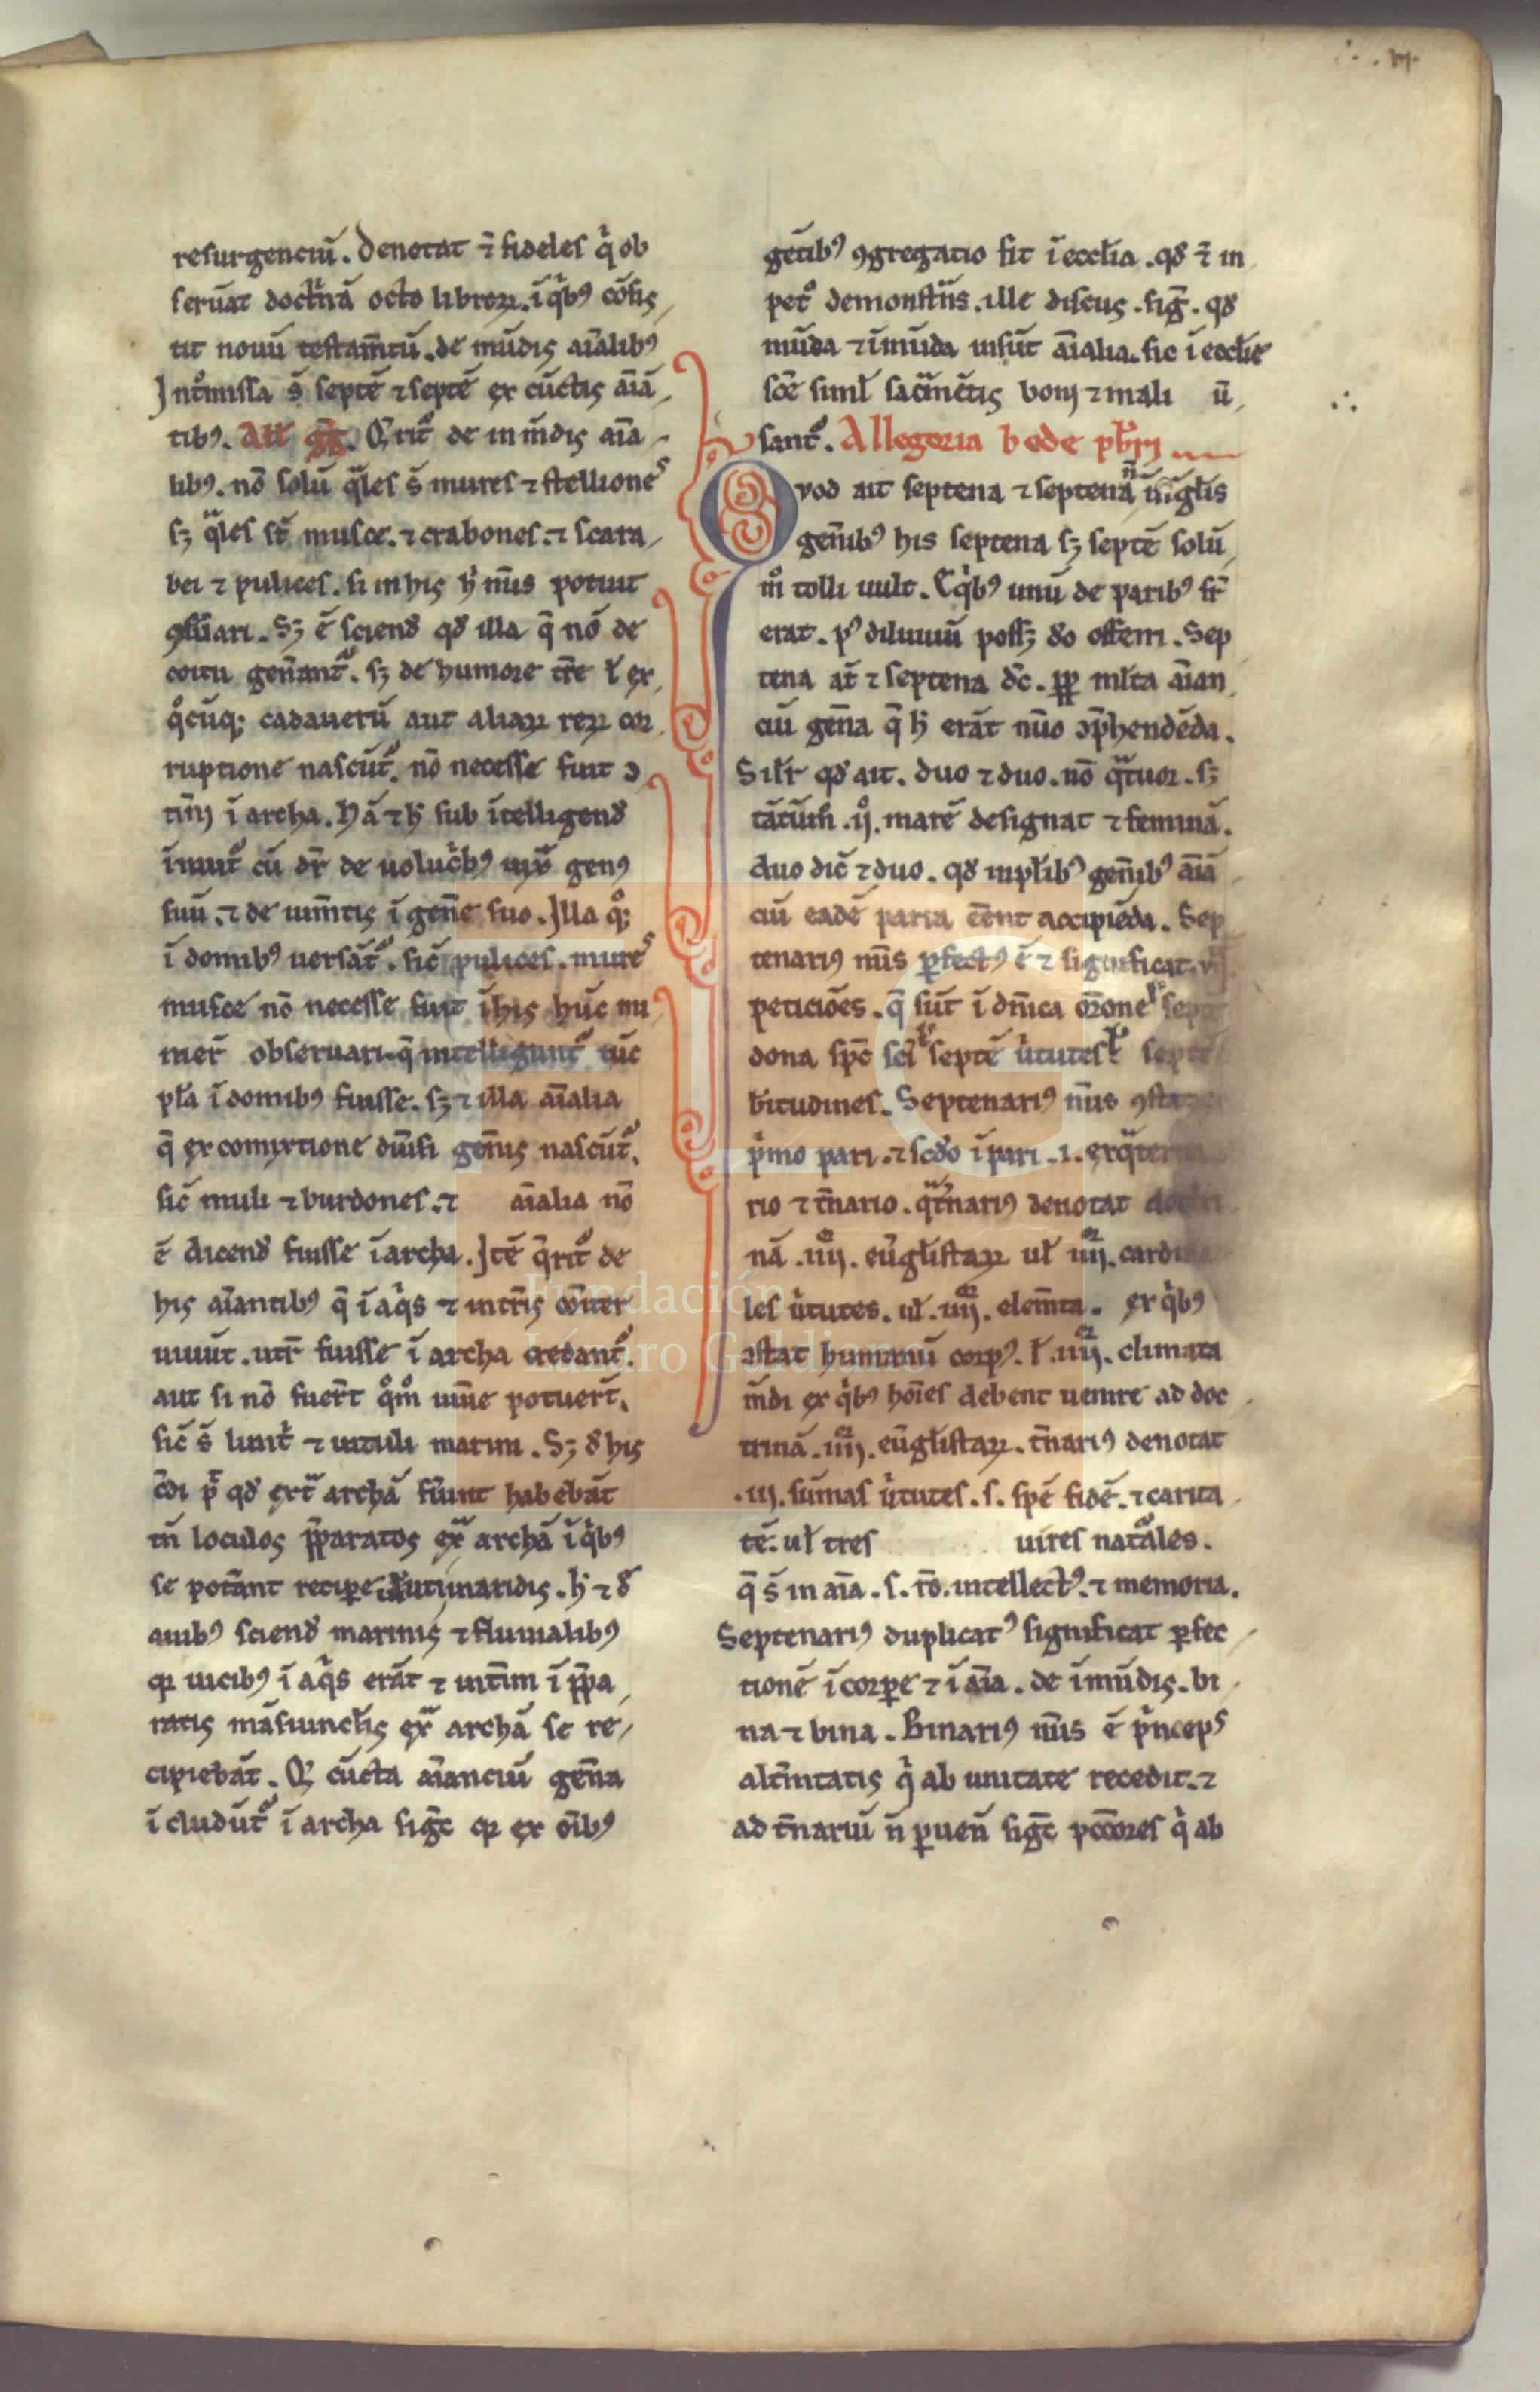 resurgenciū. Denotat ⁊ fideles q̇ ob
seruāt doctⁱnā octo libroꝝ. ī qⁱbꝰ cōsis
tit nouū testam̄tū. de mūdis aīalibꝰ
Int̄missa s̄ septē ⁊ septē ex cūctis aīā
tibꝰ. All' gḡ. Q̄rit᷑ de inmūdis aīa
libꝰ. nō solū q̄les s̄ mures ⁊ stelliones
sꝫ q̄les st̄ musce. ⁊ crabones. ⁊ scara
bei ⁊ pulices. si in his h' nūs potuit
ꝯẜuari. Sꝫ ē sciend' qd' illa q̄ nō de
coitu gen̄ant᷑. sꝫ de humore tr̄e l' ex
q̊cūqꝫ cadauerū aut aliaꝝ reꝝ cor
ruptione nascūt᷑. nō necesse fuit ↄ
tin̄i ī archa. Hā ⁊ h' sub ītelligend'
īnuit᷑ cū dr̄ de uolucⁱbꝰ genꝰ
suū. ⁊ de ium̄tis ī gen̄e suo. Illa q̊ꝫ
ī domibꝰ uersāt᷑. sic̄ pulices. mures
musce nō necesse fuit ī his hūc nu
mer̄ obseruari. q̄ intelligunt᷑ tūc
pl'a ī domibꝰ fuisse. sꝫ ⁊ illa aīalia
q̄ ex comixtione diūsi gen̄is nascūt᷑.
sic̄ muli ⁊ burdones. ⁊ aīalia nō
ē dicend' fuisse ī archa. Itē q̄rit᷑ de
his aīantibꝰ q̄ ī aqⁱs ⁊ in tr̄is
uiuūt. utr̄ fuisse ī archa credant᷑.
aut si nō fuer̄t q̊m̊ uiūe potuer̄t.
sic̄ s̄ lutr̄ ⁊ uituli marini. Sꝫ d' his
c̄di p̄t qd' ext᷑ archā fūunt habebāt
tn̄ loculos p̄paratos ex᷑ archā ī qⁱbꝰ
se potāant recipe. h' ⁊ d'
auibꝰ sciend' marinis ⁊ fluuialibꝰ
qꝛ uicibꝰ ī aqⁱs erāt ⁊ int̄im ī p̄pa
ratis māsiunclis ex᷑ archā se re
cipiebāt. Qꝫ cūcta aīanciū gen̄a
īcludūt᷑ ī archa sigc̄ qꝛ ex oībꝰ
gētibꝰ ꝯgregatio fit ī ecclia. qd' ⁊ in
pet̊ demonstⁱns. ille discus. sig̃. qd'
mūda ⁊ īmūda insūt aīalia. sic ī ecclie
sc̄e siml' sac̄m̄tis boni ⁊ mali ū
sant᷑. Allegoria bede pbr̄i
Quod ait septena ⁊ septena n̄ ī
gen̄ibꝰ his septena sꝫ septē solū
m̊ tolli uult. qⁱbꝰ unū de paribꝰ
erat. pꝰ diluuiū possꝫ d'o offerri. Sep
tena at̄ ⁊ septena dc̄. ꝓꝑ ml'ta aīan
ciū gen̄a q̄ h' erāt nūo ↄp̄hendēda.
Silr̄ qd' ait. duo ⁊ duo. nō qᵃtuor. sꝫ
tātūm̊. ij. marē designat ⁊ feminā.
duo dic̄ ⁊ duo. qd' in pl'ibꝰ gen̄ibꝰ aīā
ciū eadē paria eēnt accipiēda. Sep
tenariꝰ nūs ꝑfectꝰ ē ⁊ significat. vij
peticiōes. q̄ sūt ī dn̄ica or̄one l' septē
dona spc̄ sc̄i l' septē ūtutes l' septē
b'titudines. Septenariꝰ nūs ꝯstat
pⁱmo pari. ⁊ scd'o īpari .i. ex qᵃterna
rio ⁊ t̄nario. qᵃt̄nariꝰ denotat doctri
nā .iiij. euāgl'istaꝝ ul' iiij. cardina
les ūtutes. ul'. iiij. elem̄ta. ex qⁱbꝰ
ↄstat humanū corpꝰ. l'. iiij. climata
mūdi ex qⁱbꝰ hoīes debent uenire ad doc
trinā. iiij. eūgl'istaꝝ. t̄nariꝰ denotat
.iij. sūmas ūtutes. s. spē fidē. ⁊ carita
tē. ul' tres uires nat᷑ales.
q̄ s̄ in aīa. s. rō. intellectꝰ. ⁊ memoria.
Septenariꝰ duplicatꝰ significat ꝑfec
tionē ī corpe ⁊ ī aīa. de īmūdis. bi
na ⁊ bina. Binariꝰ nūs ē pⁱnceps
alt̄nitatis q̇ ab unitate recedit. ⁊
ad t̄nariū n̄ ꝑuen̄ sigc̄ pcc̄ores q̇ ab